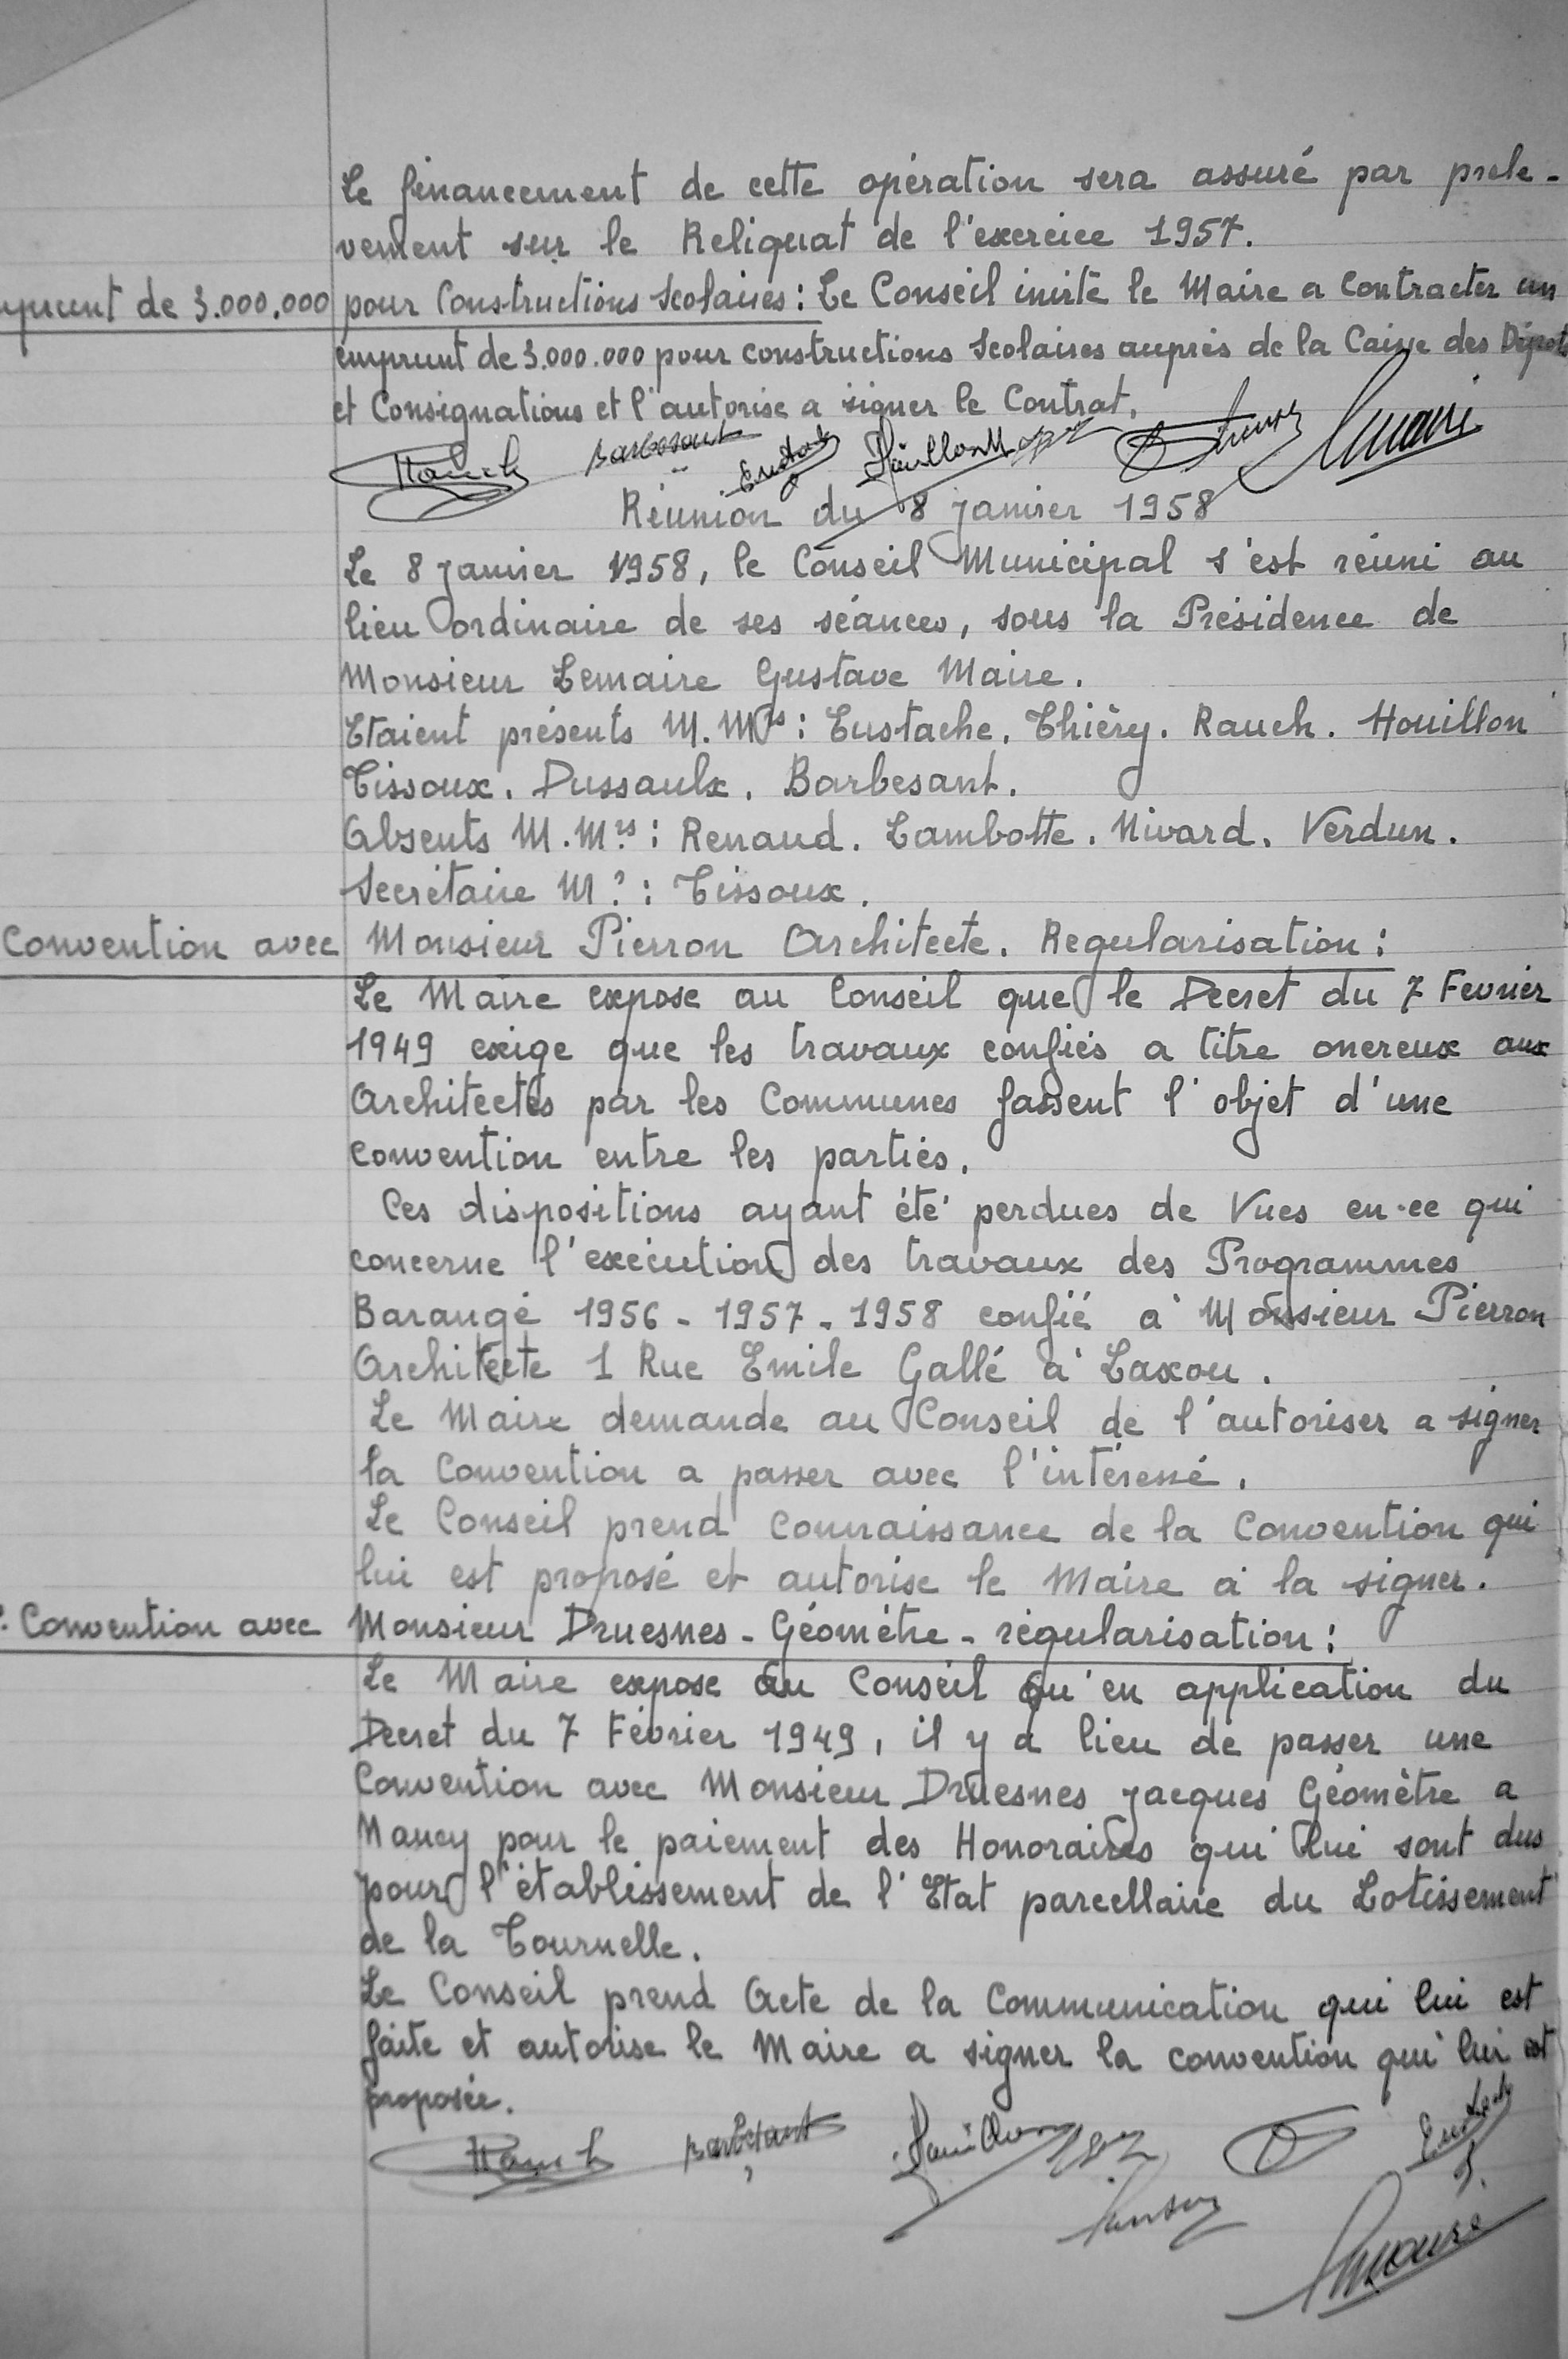 Le financement de cette opération sera assuré par prele-
vement sur le Reliquat de l'exercice 1957.
de 3.000.000 pour Constructions Scolaires : Le Conseil invite le Maire a Contracter un
emprunt de 3.000.000 pour constructions Scolaires auprès de la Caisse des Dépots
et Consignations et l'autorise a signer le Contrat.
Rauch Barbesant Eustache Houillon
Réunion du 8 janvier 1958
Le 8 janvier 1958, le Conseil Municipal s'est réuni au
lieu ordinaire de ses séances, sous la Présidence de
Monsieur Lemaire Gustave Maire.
Etaient présents M.Mrs : Eustache. Thiéry. Rauch. Houillon
Tissoux. Dussaulx. Barbesant.
Absents M.Mrs : Renaud. Lambotte. Nivard. Verdun.
Secrétaire Mr : Tissoux.
Convention avec Monsieur Pierron Architecte. Regularisation :
Le Maire expose au Conseil que le Decret du 7 Fevrier
1949 exige que les travaux confiés a titre onereux aux
Architectes par les Communes fassent l'objet d'une
convention entre les parties.
Ces dispositions ayant été perdues de Vues en ce qui
concerne l'exécution des travaux des Programmes
Barangé 1956 - 1957 - 1958 confié à Monsieur Pierron
Architecte 1 Rue Emile Gallé à Laxou.
Le Maire demande au Conseil de l'autoriser a signer
la Convention a passer avec l'intéressé.
Le Conseil prend connaissance de la Convention qui
lui est proposé et autorise le Maire à la signer.
Convention avec Monsieur Druesnes - Géomètre - régularisation :
Le Maire expose au Conseil qu'en application du
Decret du 7 Février 1949, il y a lieu de passer une
Convention avec Monsieur Druesnes Jacques Géomètre a
Nancy pour le paiement des Honoraires qui lui sont dus
pour l'établissement de l'Etat parcellaire du Lotissement
de la Tournelle.
Le Conseil prend Acte de la Communication qui lui est
faite et autorise le Maire a signer la convention qui lui est
proposée.
Rauch Barbesant Houillon